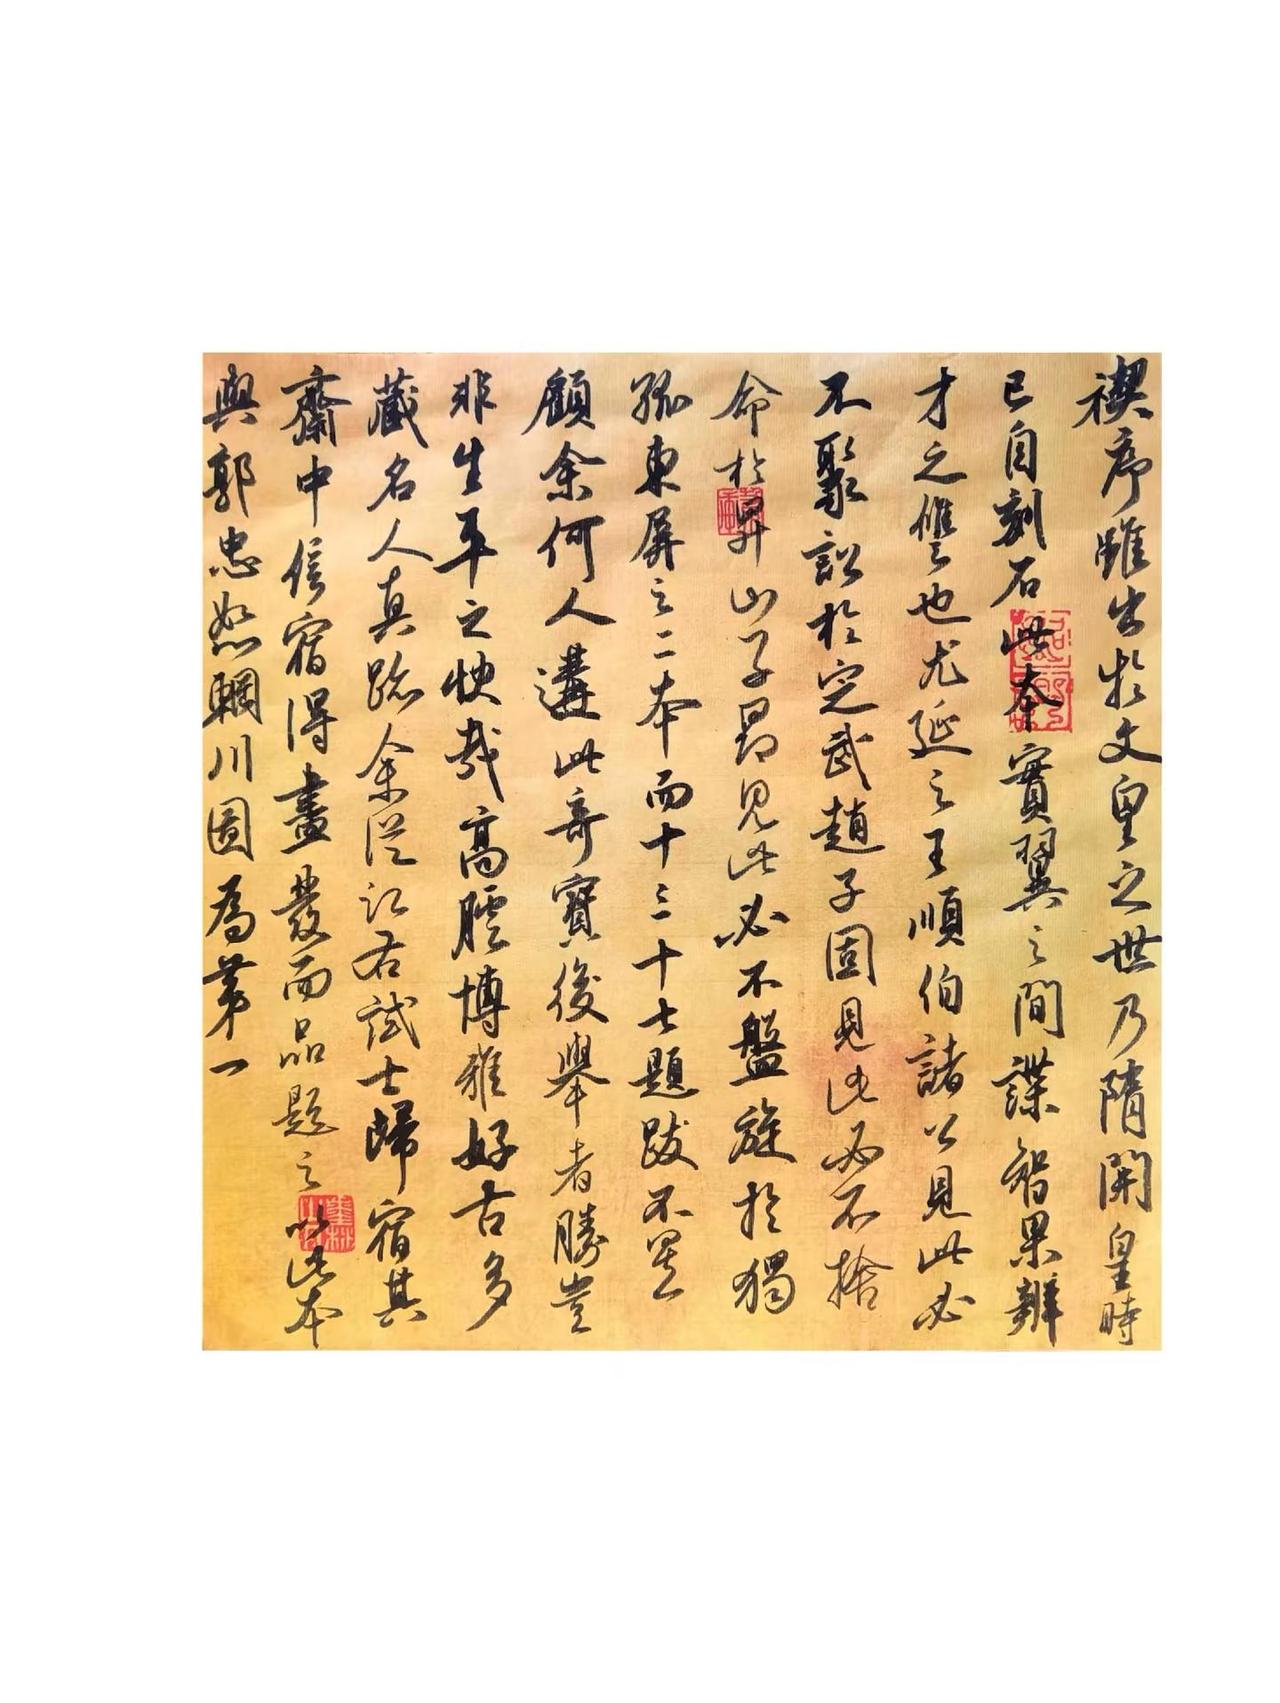 禊序雖出於文皇之世乃隋開皇時
已自刻石此本實翼之間諜智果辨
才之讐也尤延之王順伯諸公見此必
不聚訟於定武趙子固見此必不捨
命於昇山子昂見此必不盤旋於獨
孤東屏之二本而十三十七題跋不置
顧余何人遘此奇寶後舉者勝豈
非生平之快哉高腥博雅好古多
藏名人真跡余從江右試士歸宿其
齋中信宿得盡發而品題之以此本
與郭忠恕輞川圖為第一